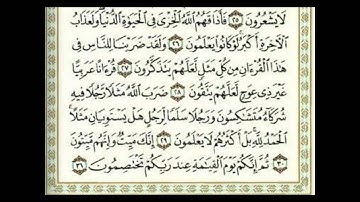 لَا يَشْعُرُونَ ٢٥ فَأَذَاقَهُمُ اللَّهُ الْخِزْيَ فِي الْحَيَوٰةِ الدُّنْيَا وَلَعَذَابُ
الْآخِرَةِ أَكْبَرُ لَوْ كَانُوا يَعْلَمُونَ ٢٦ وَلَقَدْ ضَرَبْنَا لِلنَّاسِ فِي
هَٰذَا الْقُرْءَانِ مِن كُلِّ مَثَلٍ لَّعَلَّهُمْ يَتَذَكَّرُونَ ٢٧ قُرْءَانًا عَرَبِيًّا
غَيْرَ ذِي عِوَجٍ لَّعَلَّهُمْ يَتَّقُونَ ٢٨ ضَرَبَ اللَّهُ مَثَلًا رَّجُلًا فِيهِ
شُرَكَاءُ مُتَشَاكِسُونَ وَرَجُلًا سَلَمًا لِّرَجُلٍ هَلْ يَسْتَوِيَانِ مَثَلًا
الْحَمْدُ لِلَّهِ بَلْ أَكْثَرُهُمْ لَا يَعْلَمُونَ ٢٩ إِنَّكَ مَيِّتٌ وَإِنَّهُم مَّيِّتُونَ
٣٠ ثُمَّ إِنَّكُمْ يَوْمَ الْقِيَٰمَةِ عِندَ رَبِّكُمْ تَخْتَصِمُونَ ٣١